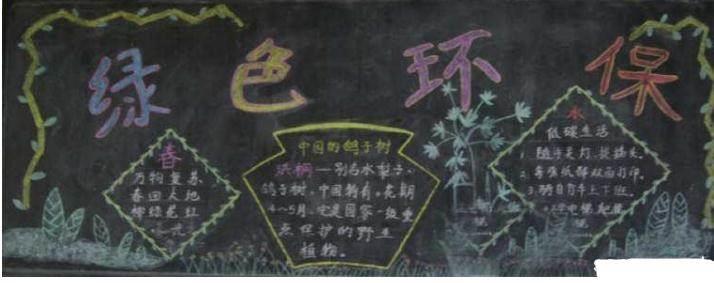 绿色环保
春
万物复苏
春回大地
柳绿花红
中国的鸽子树
珙桐—别名水梨子、
鸽子树,中国特有,花期
4~5月,它是国家一级重
点保护的野生
植物。
低碳生活
1. 随手关灯、拔插头.
2. 
双面打印.
3. 骑自行车上下班.